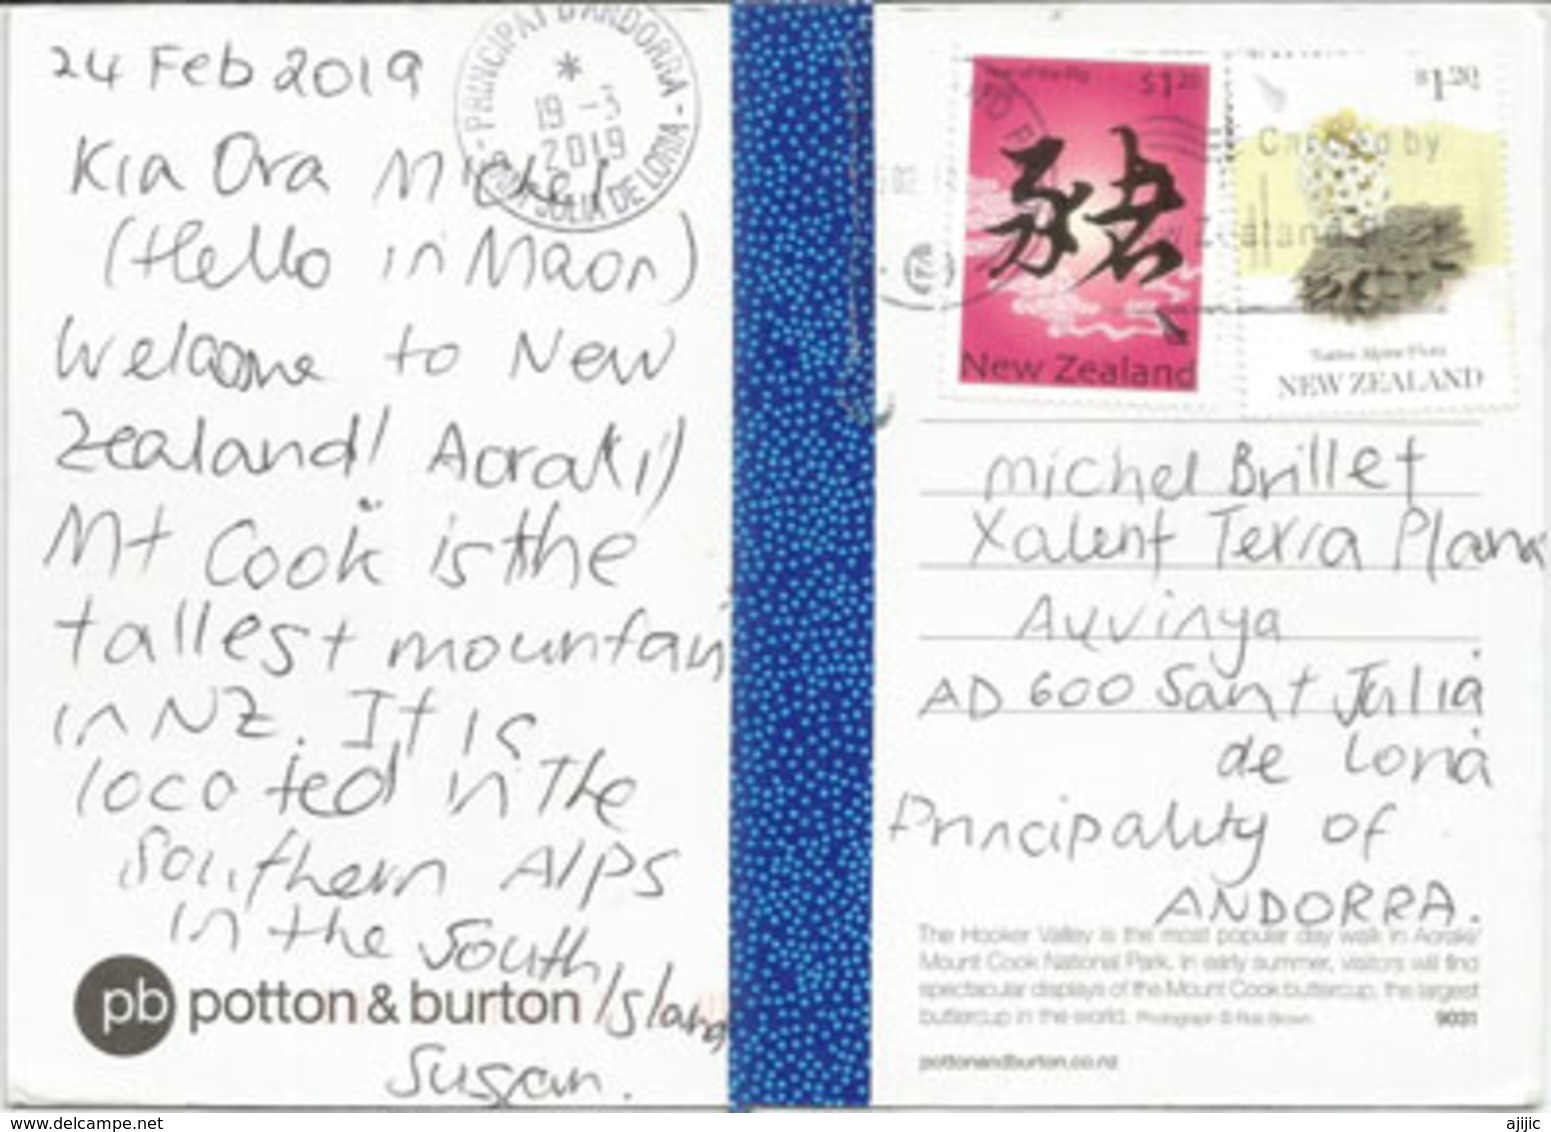 24 Feb 2019
Kia Ora Michel
(Hello in Maori)
Welcome to New
Zealand! Aoraki/
Mt Cook is the
tallest mountain
in NZ. It is
located in the
Southern Alps
in the South
Island
Susan.
pb potton & burton
PRINCIPAT D'ANDORRA
*
19 -3
2019
JULIA DE LORIA
Year of the Pig
$1.20
豬
New Zealand
$1.20
Native Alpine Flora
NEW ZEALAND
Carried by
Zealand
Michel Brillet
Xalent Terra Plana
Auvinya
AD 600 Sant Julia
de Loria
Principality of
ANDORRA.
The Hooker Valley is the most popular day walk in Aoraki/
Mount Cook National Park. In early summer, visitors will find
spectacular displays of the Mount Cook buttercup, the largest
buttercup in the world. Photograph © Rob Brown
9031
pottonandburton.co.nz
www.delcampe.net
ajijic